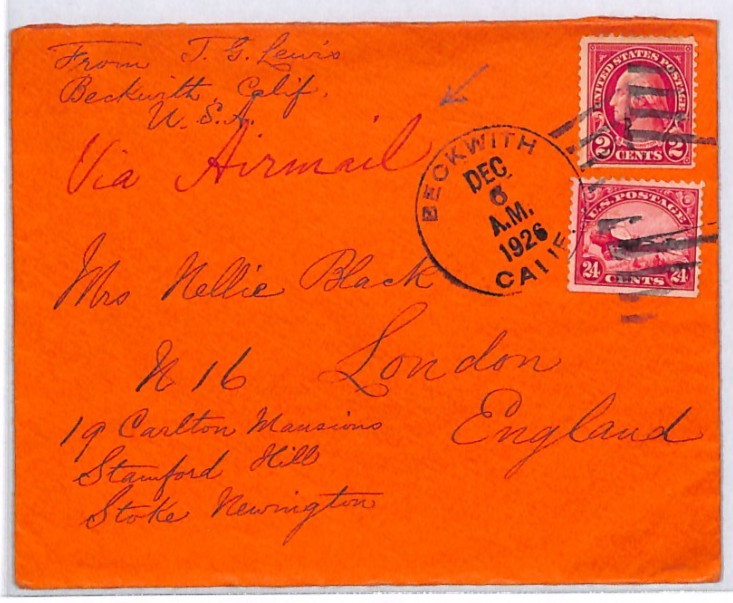 From T. G. Lewis
Beckwith, Calif.
U. S. A.
Via Airmail
UNITED STATES POSTAGE
2 CENTS 2
BECKWITH
DEC
6
A.M.
1926
CALIF.
U.S. POSTAGE
24 CENTS 24
Mrs Nellie Black
N 16 London
England
19 Carlton Mansions
Stamford Hill
Stoke Newington